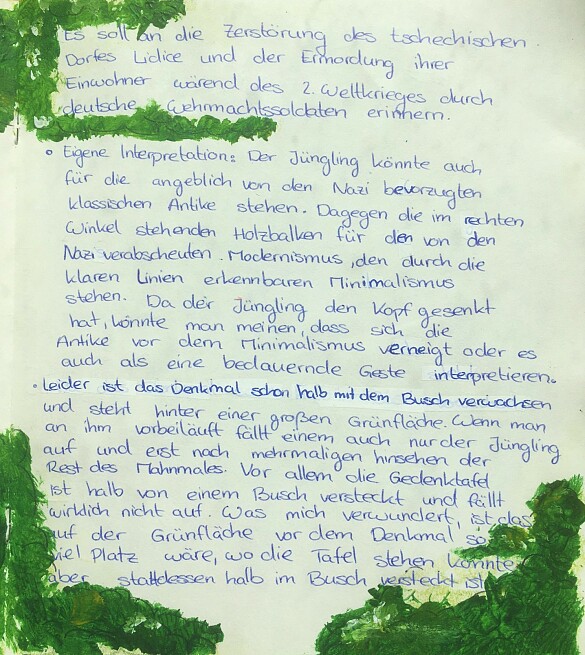 Es soll an die Zerstörung des tschechischen
Dorfes Lidice und der Ermordung ihrer
Einwohner wärend des 2. Weltkrieges durch
deutsche Wehrmachtssoldaten erinnern.
° Eigene Interpretation: Der Jüngling könnte auch
für die angeblich von den Nazi bevorzugten
klassischen Antike stehen. Dagegen die im rechten
Winkel stehenden Holzbalken für den von den
Nazi verabscheuten Modernismus, den durch die
klaren Linien erkennbaren Minimalismus
stehen. Da der Jüngling den Kopf gesenkt
hat, könnte man meinen, dass sich die
Antike vor dem Minimalismus verneigt oder es
auch als eine bedauernde Geste interpretieren.
• Leider ist das Denkmal schon halb mit dem Busch verwachsen
und steht hinter einer großen Grünfläche. Wenn man
an ihm vorbeiläuft fällt einem auch nur der Jüngling
auf und erst nach mehrmaligen hinsehen der
Rest des Mahnmales. Vor allem die Gedenktafel
ist halb von einem Busch versteckt und fällt
wirklich nicht auf. Was mich verwundert, ist das
auf der Grünfläche vor dem Denkmal so
viel Platz wäre, wo die Tafel stehen könnte
aber stattdessen halb im Busch versteckt ist